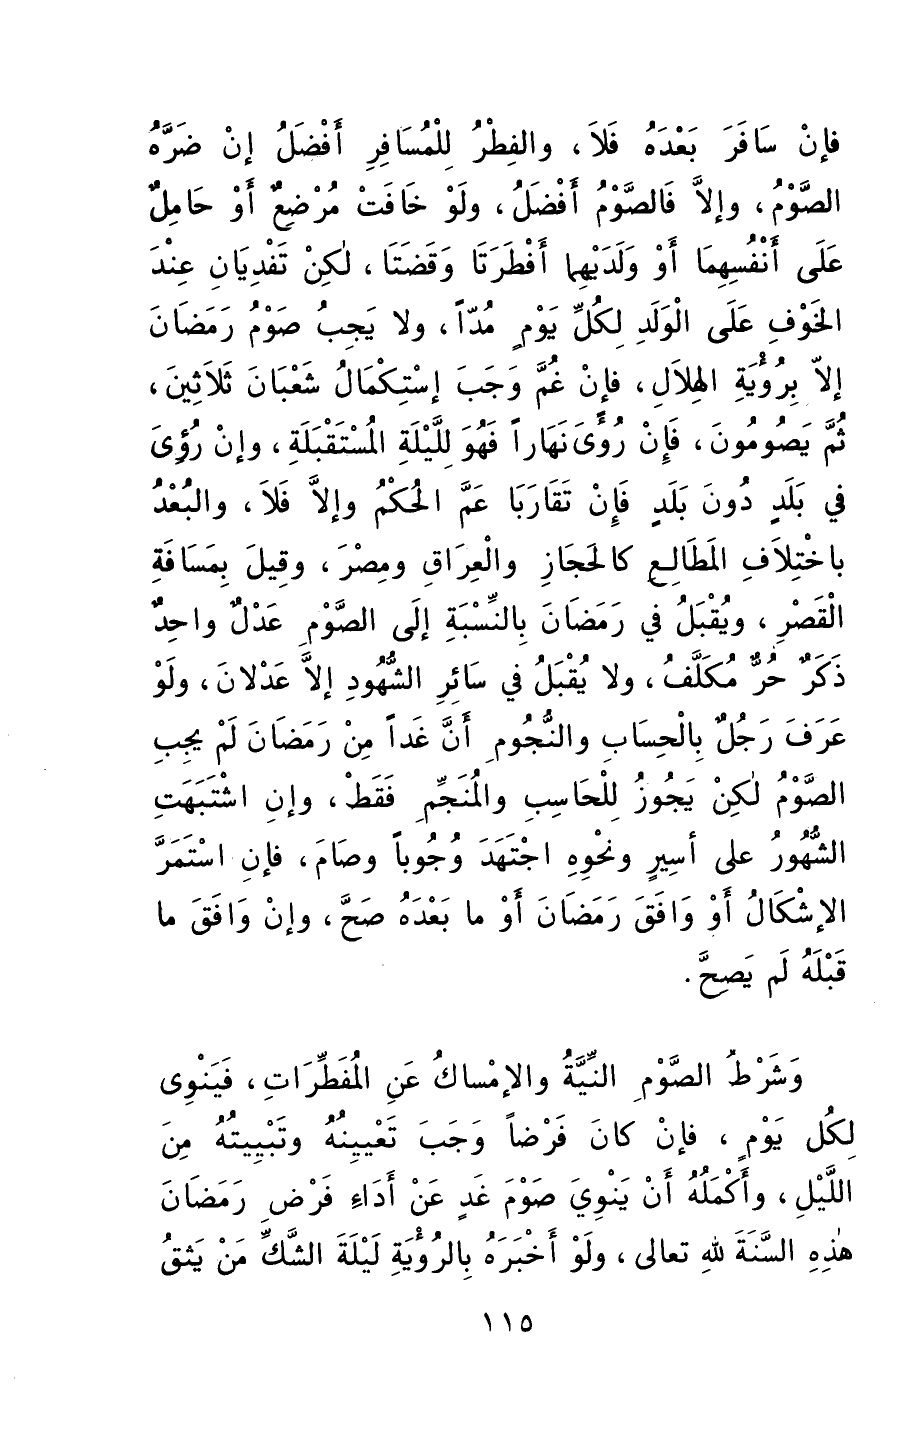 فإنْ سَافَرَ بَعْدَهُ فَلَا ، والفِطْرُ لِلْمُسَافِرِ أَفْضَلُ إنْ ضَرَّهُ
الصَّوْمُ ، وإلاَّ فَالصَّوْمُ أَفْضَلُ ، ولَوْ خَافَتْ مُرْضِعٌ أَوْ حَامِلٌ
عَلَى أَنْفُسِهِمَا أَوْ وَلَدَيْهِما أَفْطَرَتَا وَقَضَتَا ، لٰكِنْ تَفْدِيَانِ عِنْدَ
الخَوْفِ عَلَى الْوَلَدِ لِكُلِّ يَوْمٍ مُدّاً ، ولا يَجِبُ صَوْمُ رَمَضَانَ
إلاّ بِرُؤْيَةِ الهِلالِ ، فإنْ غُمَّ وَجَبَ إسْتِكْمَالُ شَعْبَانَ ثَلَاثِينَ ،
ثُمَّ يَصُومُونَ ، فَإِنْ رُؤَىَ نَهَاراً فَهُوَ لِلَّيْلَةِ المُسْتَقْبَلَةِ ، وإنْ رُؤِىَ
في بَلَدٍ دُونَ بَلَدٍ فَإِنْ تَقَارَبَا عَمَّ الحُكْمُ وإلاَّ فَلَا ، والبُعْدُ
باخْتِلَافِ المَطَالِعِ كالحَجَازِ والْعِرَاقِ ومِصْرَ ، وقِيلَ بِمَسَافَةِ
الْقَصْرِ ، ويُقْبَلُ في رَمَضَانَ بِالنِّسْبَةِ إلَى الصَّوْمِ عَدْلٌ واحِدٌ
ذَكَرٌ حُرٌّ مُكَلَّفُ ، ولا يُقْبَلُ في سَائِرِ الشُّهُودِ إلاَّ عَدْلانَ ، ولَوْ
عَرَفَ رَجُلٌ بِالْحِسَابِ والنُّجُومِ أَنَّ غَداً مِنْ رَمَضَانَ لَمْ يجِبِ
الصَّوْمُ لٰكِنْ يَجُوزُ لِلْحَاسِبِ والمُنَجِّمِ فَقَطْ ، وإنِ اشْتَبَهَتِ
الشُّهُورُ على أسِيرٍ ونحْوِهِ اجْتَهَدَ وُجُوباً وصَامَ ، فإنِ اسْتَمَرَّ
الإشْكَالُ أَوْ وَافَقَ رَمَضَانَ أَوْ ما بَعْدَهُ صَحَّ ، وإنْ وَافَقَ ما
قَبْلَهُ لَم يَصِحَّ .
وَشَرْطُ الصَّوْمِ النِّيَّةُ والإمْساكُ عَنِ المُفَطِّرَاتِ ، فَيَنْوِى
لِكُل يَوْمٍ ، فإنْ كانَ فَرْضاً وَجَبَ تَعْيِينُهُ وتَبْيِيتهُ مِنَ
اللَّيْلِ ، وأَكْمَلُهُ أنْ يَنْوِيَ صَوْمَ غَدٍ عَنْ أَدَاءِ فَرْضِ رَمَضَانَ
هٰذِهِ السَّنَةَ للهِ تعالى ، ولَوْ أَخْبَرَهُ بِالرُؤْيَةِ لَيْلَةَ الشَّكِّ مَنْ يَثقُ
١١٥